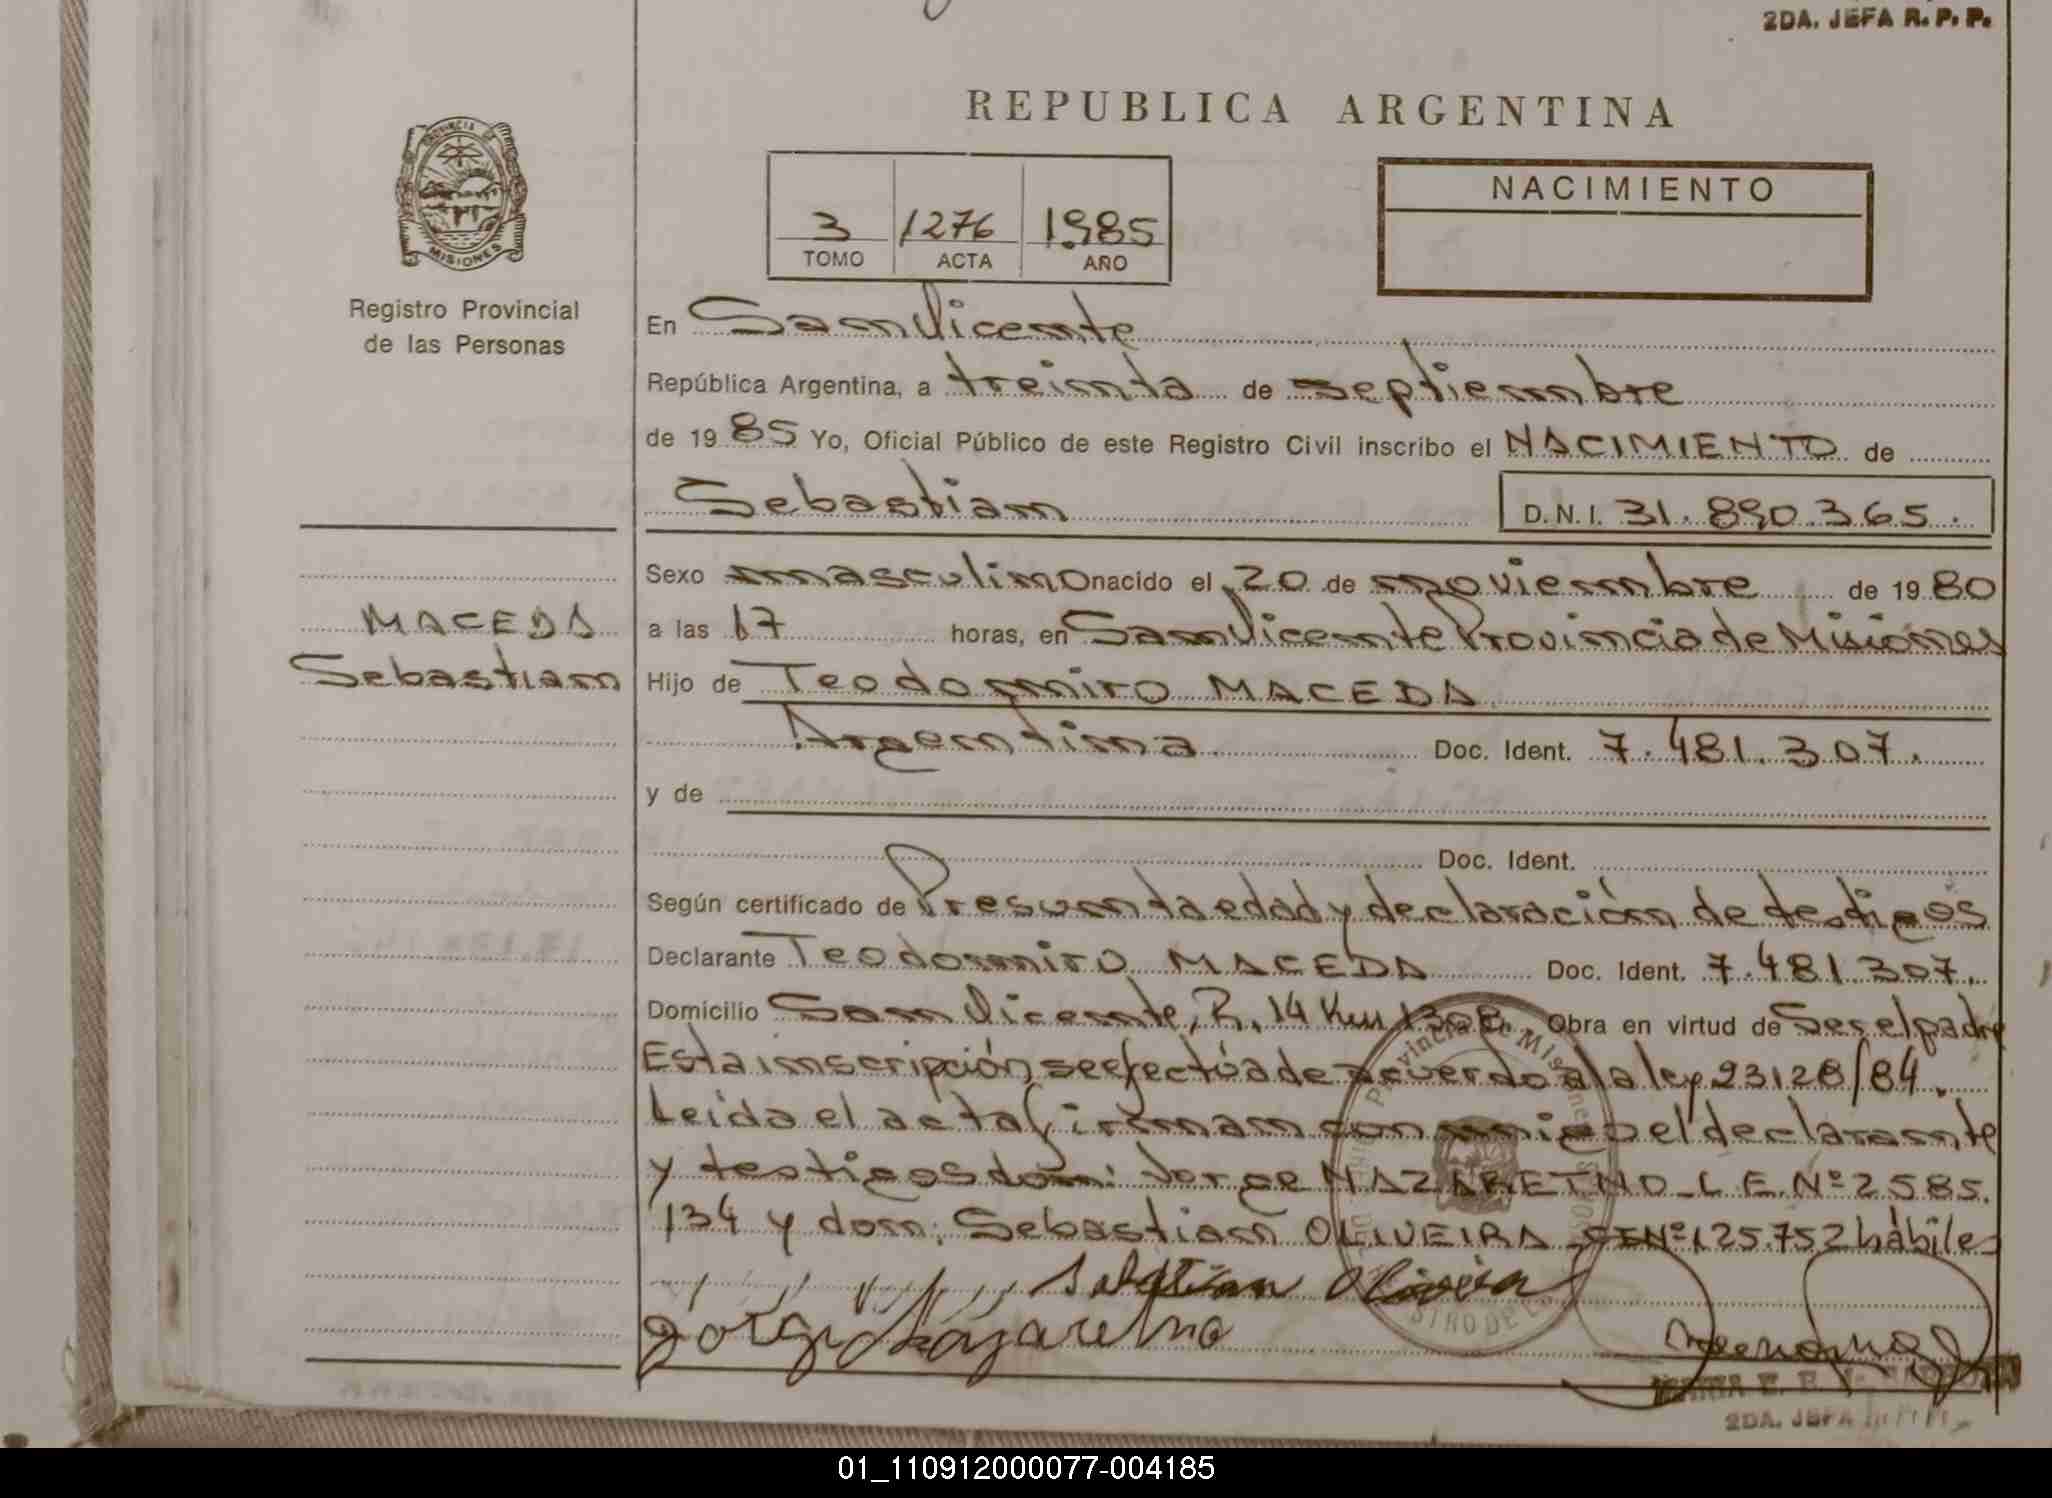 2DA. JEFA R. P. P.
REPUBLICA ARGENTINA
PROVINCIA DE
MISIONES
Registro Provincial
de las Personas
3 1276 1985
TOMO ACTA AÑO
NACIMIENTO
En San Vicente
República Argentina, a treinta de septiembre
de 1985 Yo, Oficial Público de este Registro Civil inscribo el NACIMIENTO de
Sebastian D.N.I. 31.890.365.
MACEDA
Sebastian
Sexo masculino nacido el 20 de noviembre de 1980
a las 17 horas, en San Vicente Provincia de Misiones
Hijo de Teodomiro MACEDA
Argentina Doc. Ident. 7.481.307.
y de
Doc. Ident.
Según certificado de Presunta edad y declaración de testigos
Declarante Teodomiro MACEDA Doc. Ident. 7.481.307.
Domicilio San Vicente, R. 14 Km 1306. Obra en virtud de Ser el padre
Esta inscripción se efectúa de acuerdo a la ley 23128/84.
Leida el acta firman conmigo el declarante
y testigos don: Jorge NAZARETNO L E. Nº 2585.
134 y don: Sebastian OLIVEIRA CI Nº 125.752 hábiles
Provincia de Misiones
Sebastian Oliveira
Jorge Nazaretno
2DA. JEFA
01_110912000077-004185